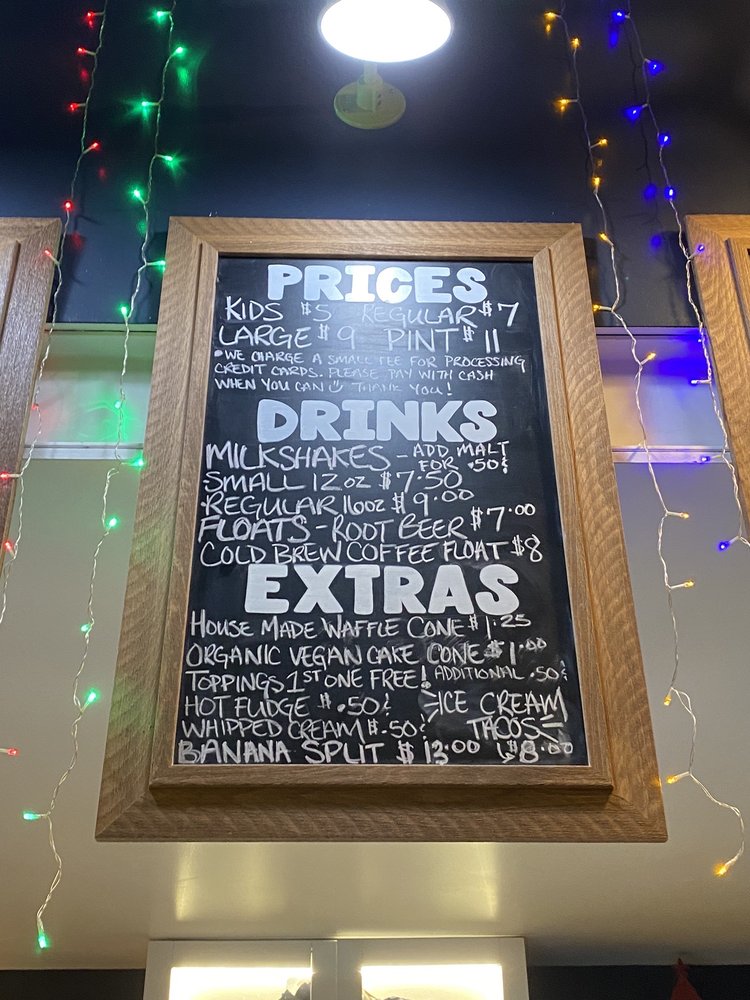 PRICES
KIDS $5 REGULAR $7
LARGE $9 PINT $11
•WE CHARGE A SMALL FEE FOR PROCESSING
CREDIT CARDS. PLEASE PAY WITH CASH
WHEN YOU CAN THANK YOU!
DRINKS
MILKSHAKES - ADD MALT
FOR .50¢
•SMALL 12oz $7.50
•REGULAR 16oz $9.00
FLOATS - ROOT BEER $7.00
COLD BREW COFFEE FLOAT $8
EXTRAS
HOUSE MADE WAFFLE CONE $1.25
ORGANIC VEGAN CAKE CONE $1.00
TOPPINGS 1ST ONE FREE! ADDITIONAL .50¢
HOT FUDGE $.50¢
WHIPPED CREAM $.50¢
ICE CREAM
TACOS
$8.00
BANANA SPLIT $13.00